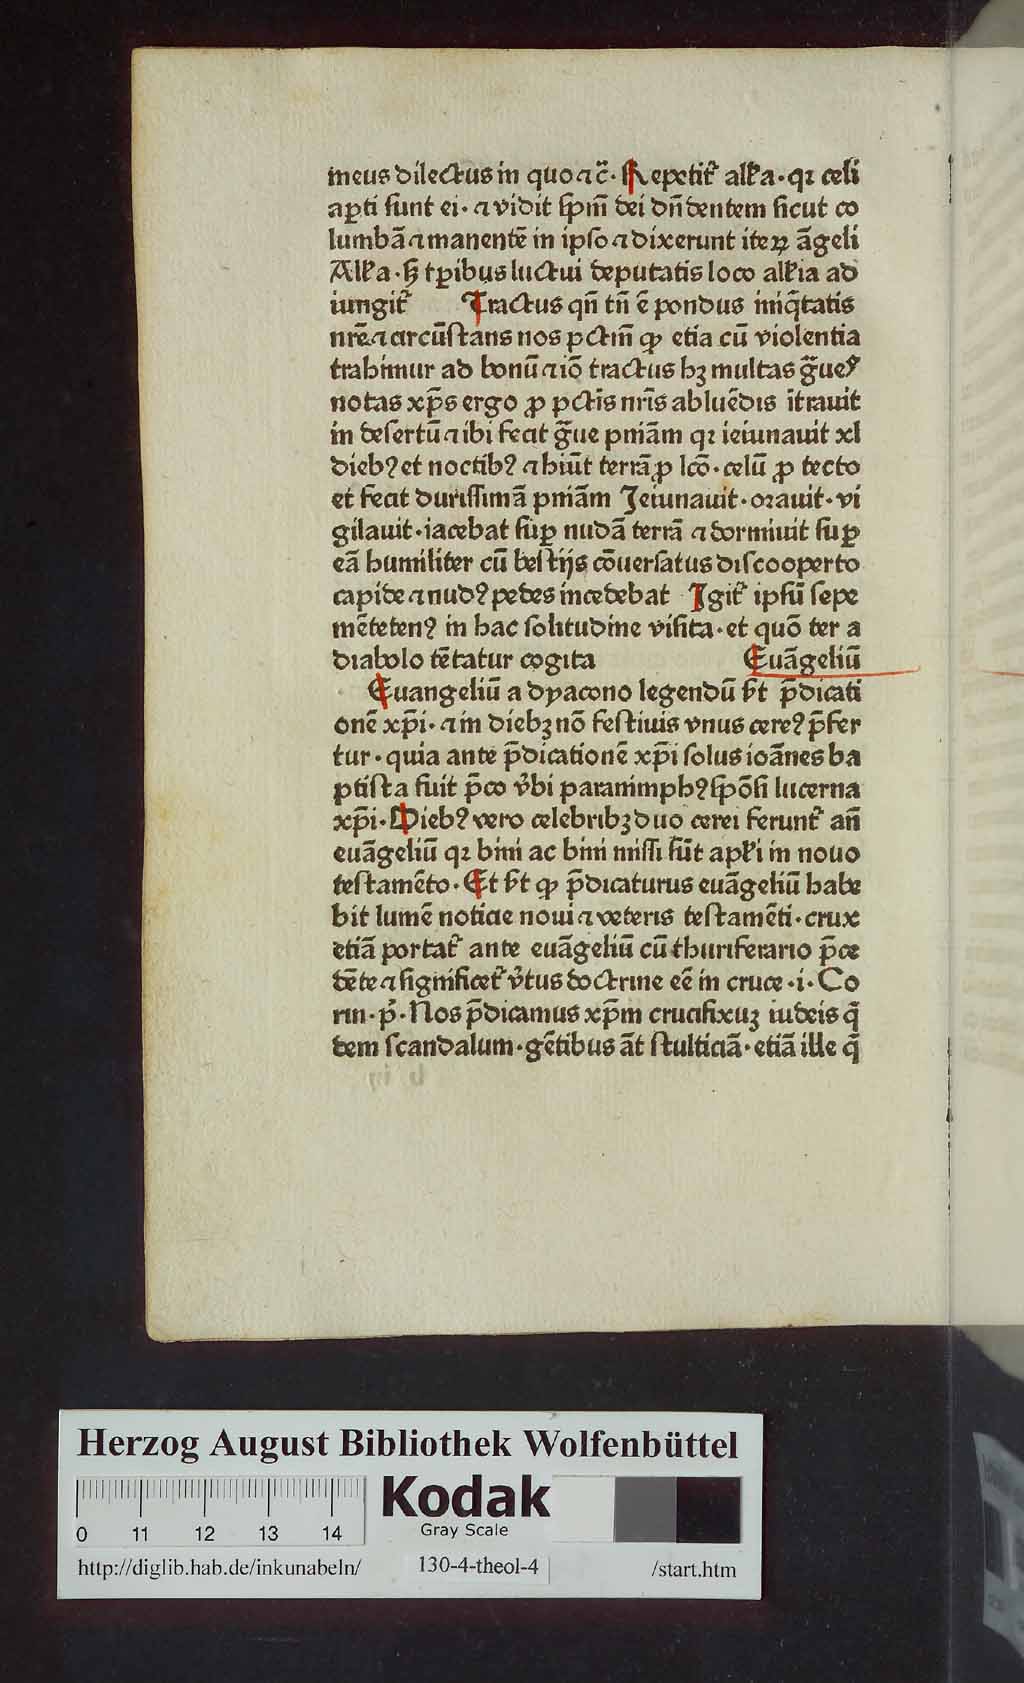 meus dilectus in quo ⁊ c̃· Repetit᷑ allꝛa· qꝛ celi
aꝑti sunt ei· ⁊ vidit spm̄ dei dn̄dentem sicut co
lumbā ⁊ manentē in ipso ⁊ dixerunt iteꝝ āgeli
Alla· hꝫ tꝑibus luctui deputatis loco allia ad
iungit᷑ Tractus qn̄ tn̄ ē pondus iniq̄tatis
nrē ⁊ circūstans nos pctm̄ ꝙ etia cū violentia
trahimur ad bonū ⁊ iō tractus hꝫ multas g̃ues
notas xp̄s ergo ꝓ pctīs nr̄is abluēdis ītrauit
in desertū ⁊ ibi fecit g̃ue pniām qꝛ ieiunauit xl
dieb⁹ et noctib⁹ ⁊ habuīt terrā ꝓ lcō· celū ꝓ tecto
et fecit durissimā pniām Jeiunauit· orauit· vi
gilauit· iacebat suꝑ nudā terrā ⁊ dormiuit suꝑ
eā humiliter cū bestijs cōuersatus discooperto
capite ⁊ nud⁹ pedes incedebat Jgit᷑ ipsū sepe
mēteten⁹ in hac solitudine visita· et quō ter a
diabolo tētatur cogita Euāgeliū
Euangeliū a dyacono legendū sꝫt p̄dicati
onē xp̄i· ⁊ in diebꝫ nō festiuis vnus cere⁹ p̄fer
tur· quia ante p̄dicationē xp̄i solus ioānes ba
ptista fuit p̄co v̄bi paranimph⁹ spōsi lucerna
xp̄i· Dieb⁹ vero celebribꝫ duo cerei ferunt᷑ an̄
euāgeliū qꝛ bini ac bini missi sūt apłi in nouo
testamēto· Et sꝫt ꝙ p̄dicaturus euāgeliū habe
bit lumē noticie noui ⁊ veteris testamēti· crux
etiā portat᷑ ante euāgeliū cū thuriferario p̄ce
dēte ⁊ significet᷑ v̄tus doctrine eē in cruce ·i· Co
rin· p̄· Nos p̄dicamus xp̄m crucifixuꝫ iudeis q̄
dem scandalum· gētibus āt stulticiā· etiā ille q̄
Herzog August Bibliothek Wolfenbüttel
0 11 12 13 14
Kodak
Gray Scale
http://diglib.hab.de/inkunabeln/ 130-4-theol-4 /start.htm